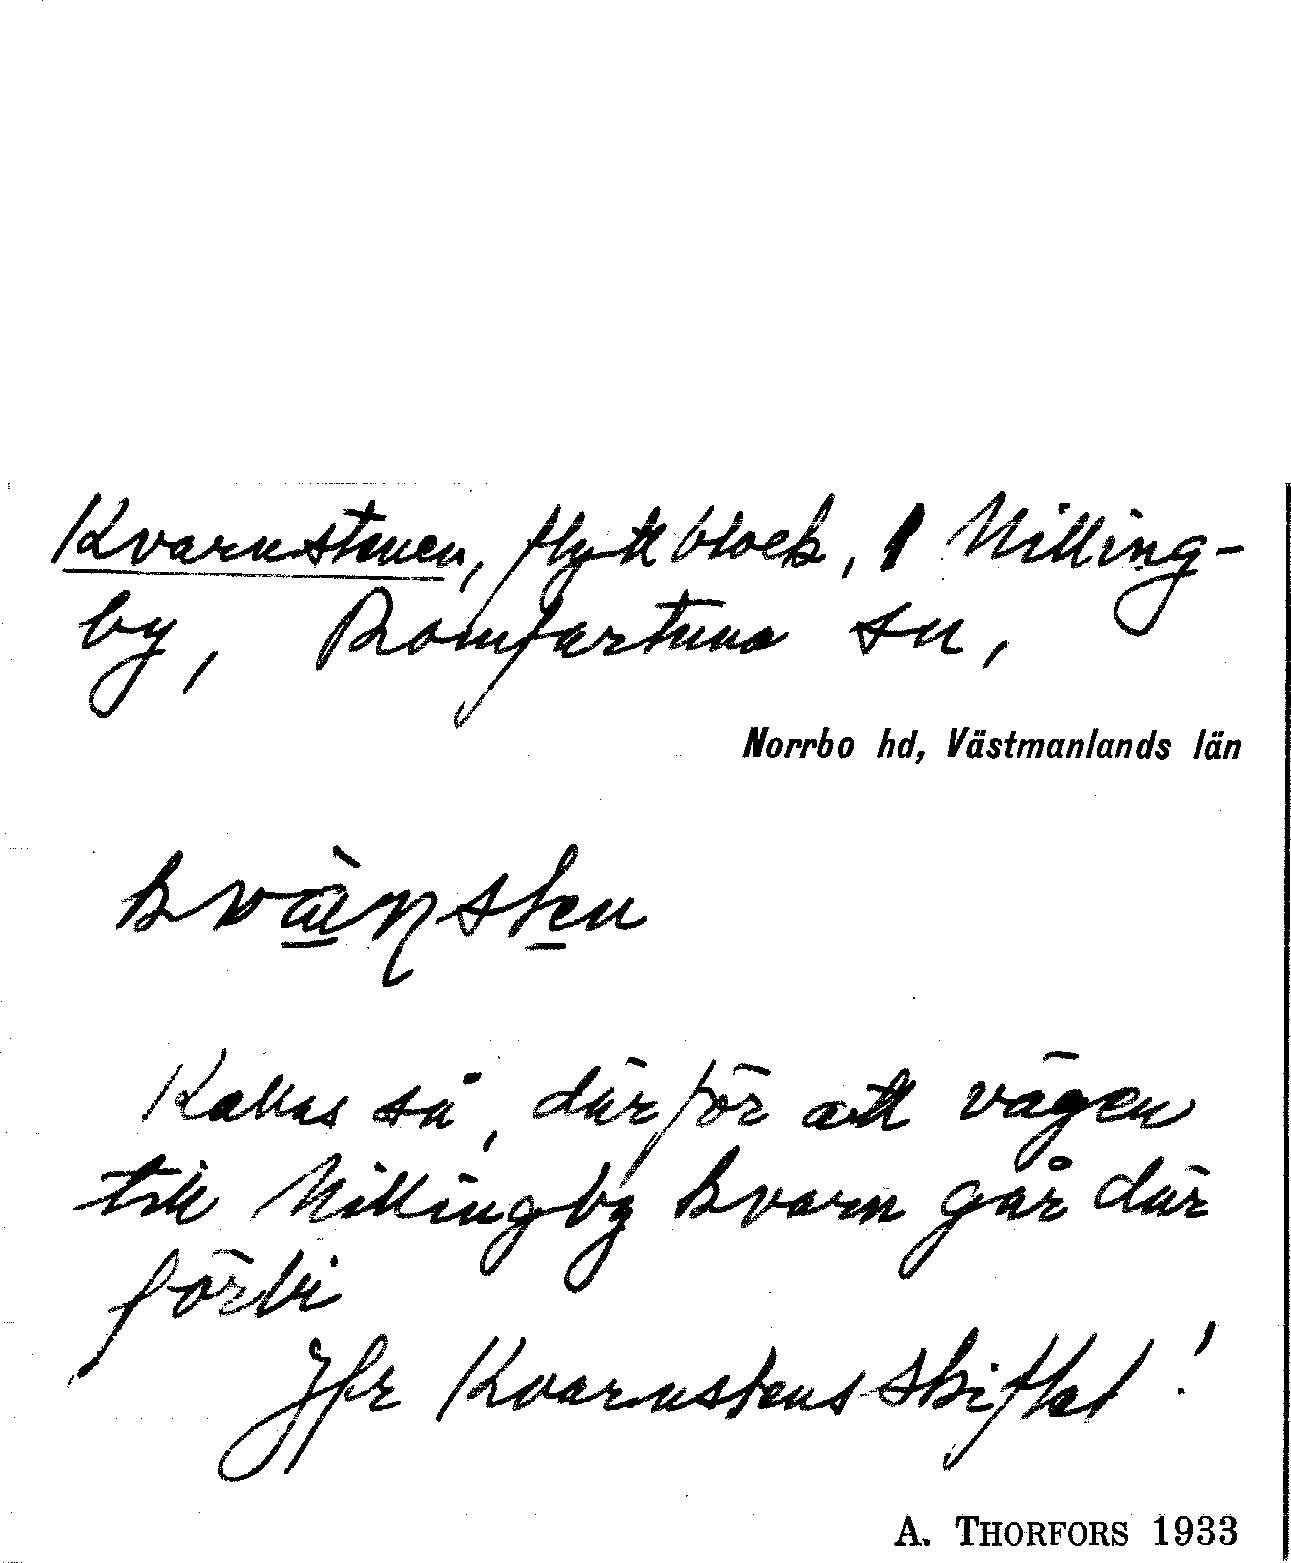 Kvarnstenen, flyttblock, Nilling-
by, Romfartuna sn,
Norrbo hd, Västmanlands län
kvä̀ɳsten
Kallas så, därför att vägen
till Nillingby kvarn går där
förbi
Jfr Kvarnstensskiftet!
A. THORFORS 1933